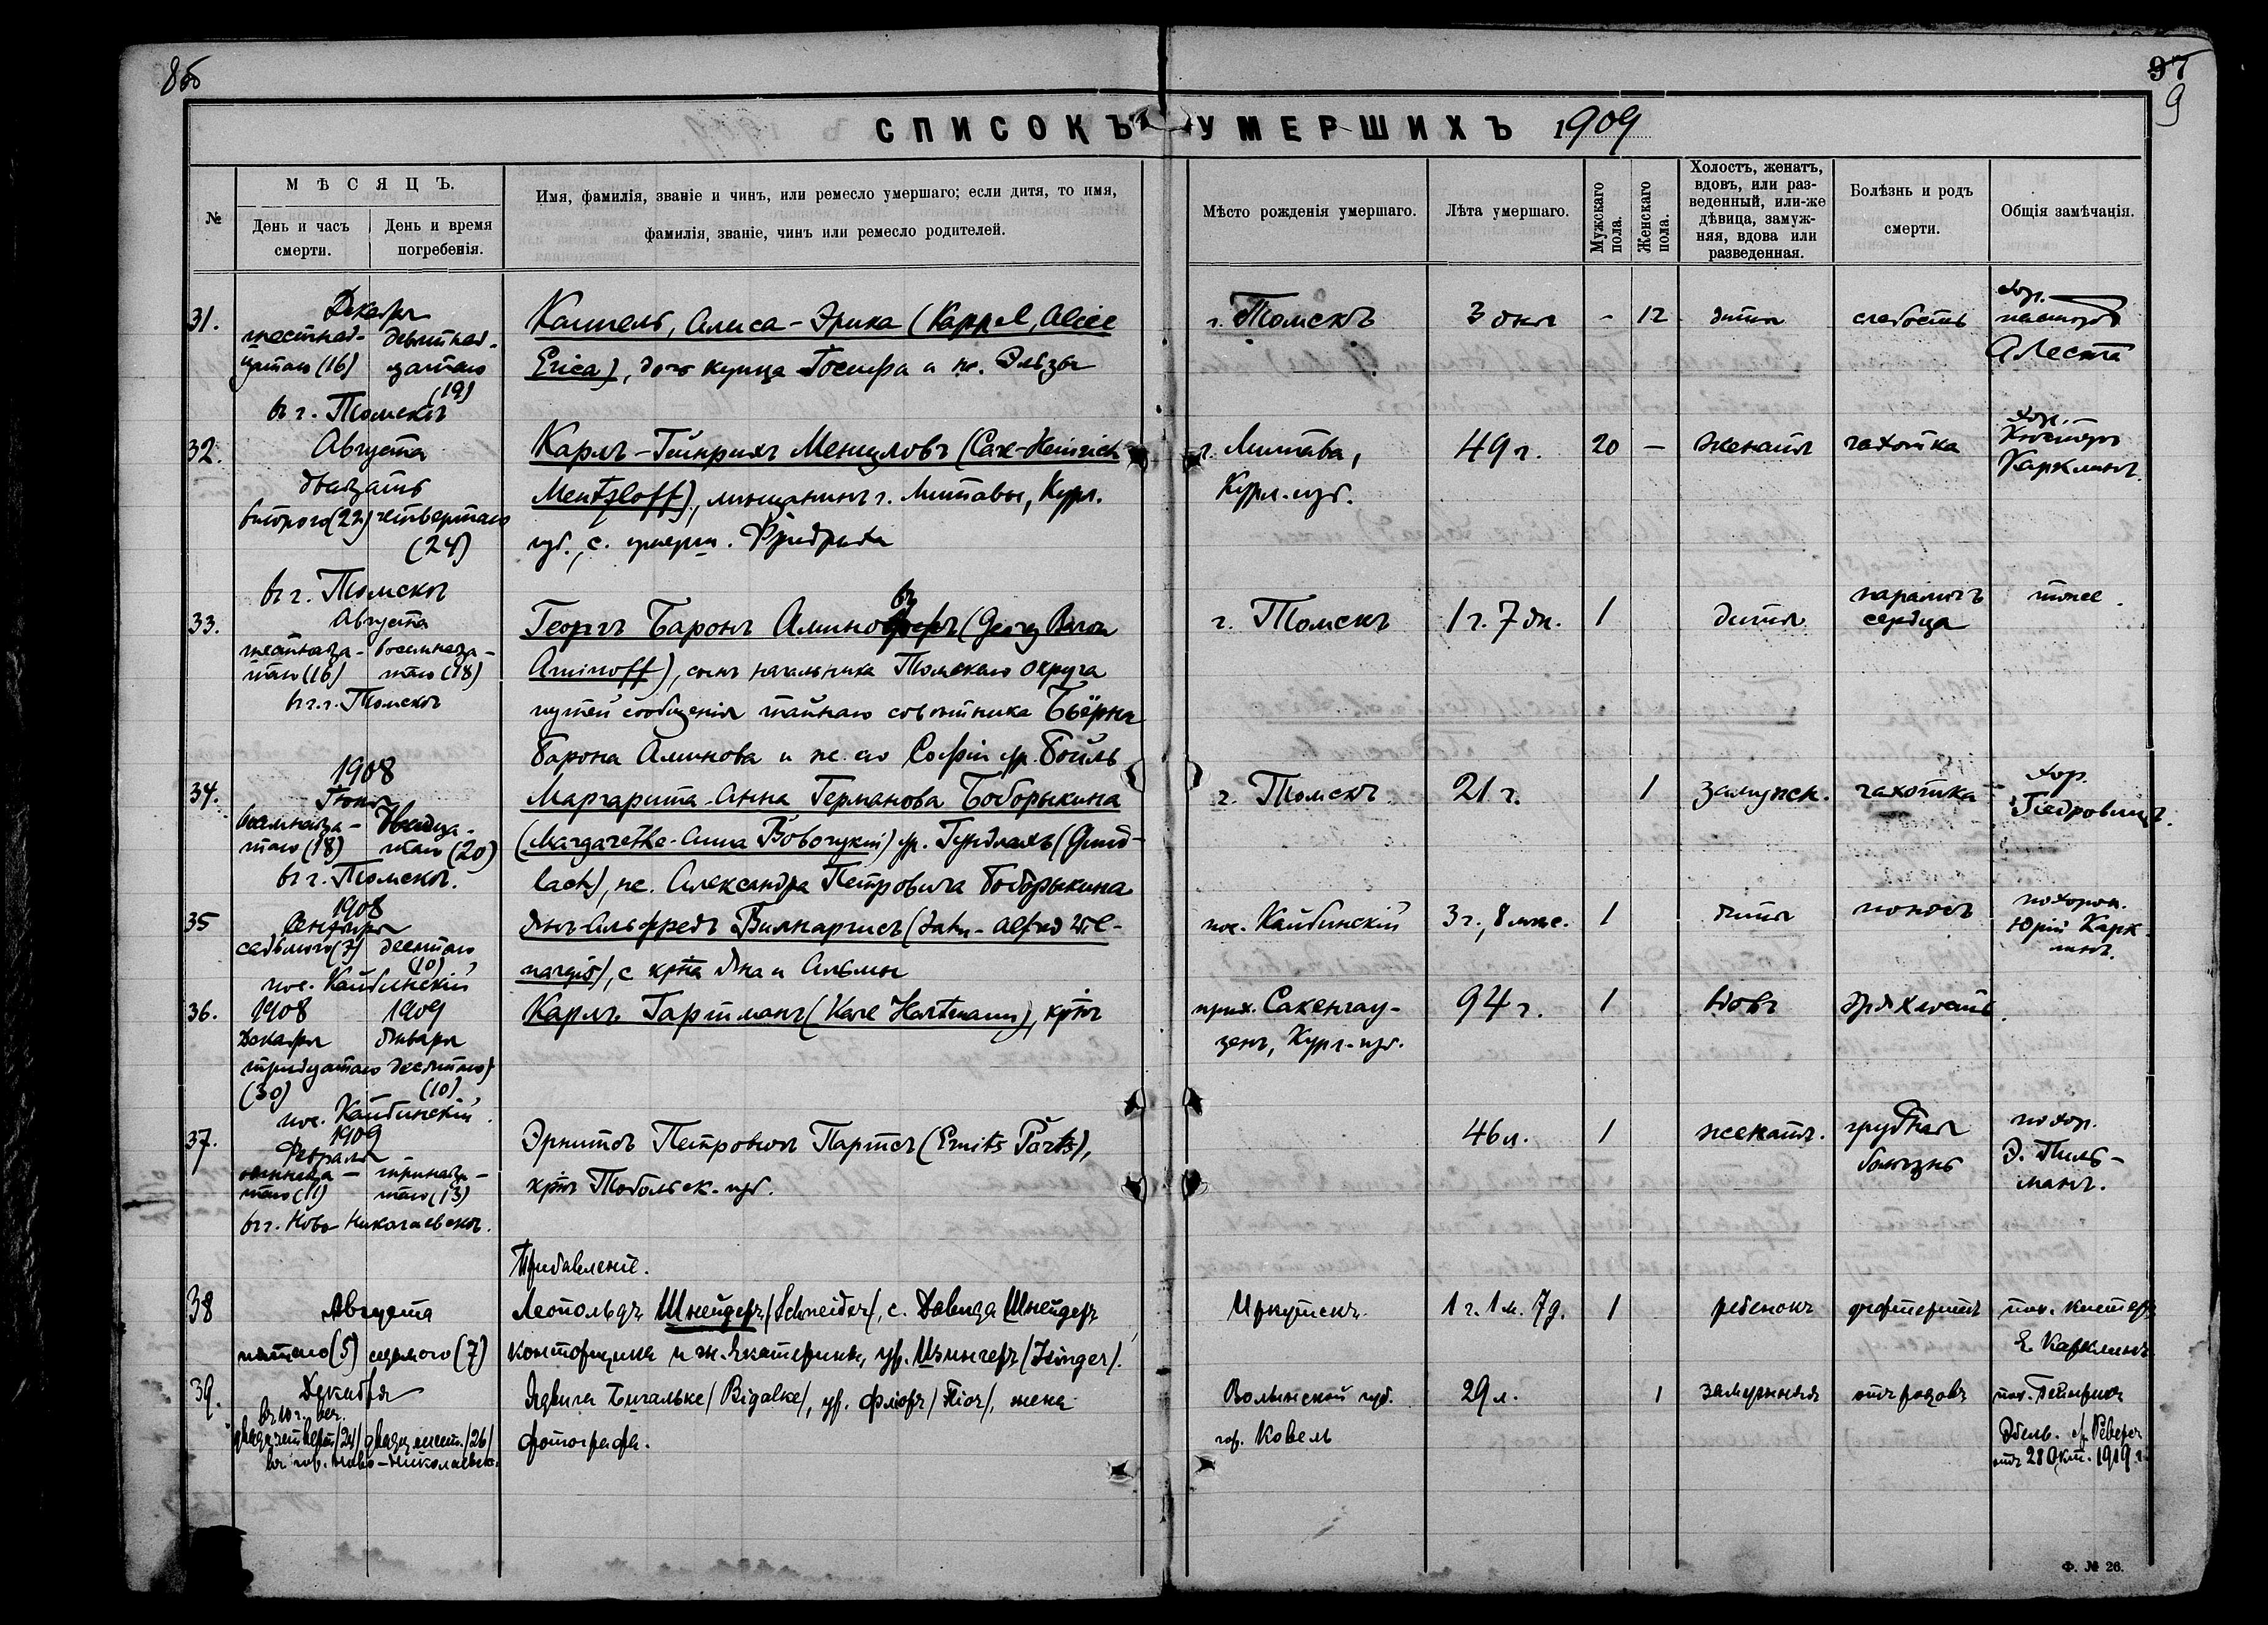 8об
97
9
СПИСОКЪ УМЕРШИХЪ 1909
№
МѢСЯЦЪ.
День и часъ смерти.
День и время погребенія.
Имя, фамилія, званіе и чинъ, или ремесло умершаго; если дитя, то имя,
фамилія, званіе, чинъ или ремесло родителей.
Мѣсто рожденія умершаго.
Лѣта умершаго.
Мужскаго пола.
Женскаго пола.
Холостъ, женатъ,
вдовъ, или раз-
веденный, или-же
дѣвица, замуж-
няя, вдова или
разведенная.
Болѣзнь и родъ
смерти.
Общія замѣчанія.
31.
Декабря
шестнад- девятнад-
цатаго (16) цатаго
(19)
въ г. Томскѣ
Каппель, Алиса-Эрика (Kappel, Alice
Erica), дочь купца Іосифа и ж. Эльзы
г. Томскъ
3 дня
- 12
дитя
слабость
хор.
пасторъ
А Леста
32.
Августа
двадцать
второго (22) четвертаго
(24)
въ г. Томскѣ
Карлъ-Гейнрихъ Менцловъ (Carl-Heinrich
Mentzloff), мѣщанинъ г. Митавы, Курл.
губ., с. умерш. Фридриха
г. Митава,
Курл. губ.
49 г.
20 —
женатъ
чахотка
хор.
Кистеръ
Карклинъ.
33.
Августа
шестнадца- восемнадца-
таго (16) таго (18)
въ г. Томскѣ
Георгъ Баронъ Аминовъ (Georg Baron
Aminoff), сынъ начальника Томскаго округа
путей сообщенія тайнаго совѣтника Бьёрна
Барона Аминова и ж. его Софіи ур. Бойль
г. Томскъ
1 г. 7 дн.
1
дитя
параличъ
сердца
тоже.
34.
1908
Іюня
восемнадца- двадца-
таго (18) таго (20)
въ г. Томскѣ.
Маргарита-Анна Германова Боборыкина
(Margarethe-Anna Boborykin) ур. Гундлахъ (Gund-
lach), ж. Александра Петровича Боборыкина
г. Томскъ
21 г.
1
замужн.
чахотка
хор.
Педровицъ.
35
1908
Сентября
седьмого (7) десятаго
(10)
пос. Кайбинскій
Янъ-Альфредъ Вилнаргисъ (Jahn-Alfred Wil-
nargis), с. крна Яна и Альмы
пос. Кайбинскій
3 г., 8 мѣс.
1
дитя
поносъ
похорон.
Юрій Карк-
линъ.
36.
1908 1909
Декабря Января
тридцатаго десятаго
(30) (10)
пос. Кайбинскій.
Карлъ Гартманъ (Karl Hartmann), крнъ
прих. Сакенгау-
зенъ, Курл. губ.
94 г.
1
вдовъ
дряхлость.
37.
1909
Февраля
одиннадца- тринадца-
таго (11) таго (13)
въ г. Ново-Николаевскѣ.
Эрнитсъ Петровичъ Партсъ (Ernits Pärts),
крнъ Тобольск. губ.
46 л.
1
женатъ.
грудная
болѣзнь
похор.
Э. Тиль-
манъ.
Прибавленіе.
38
Августа
пятаго (5) седьмого (7)
Леопольдъ Шнейдеръ (Schneider), с. Давида Шнейдеръ
конторщика и ж. Екатерины, ур. Изингеръ (Isinger).
Иркутскъ.
1 г. 1 м. 7 д.
1
ребенокъ
дифтеритъ
пох. кистеръ
Е. Карклинъ.
39.
Декабря
въ 10 ч. веч.
двадц. четверт. (24) двадц. шест. (26)
въ гор. Ново-Николаевскѣ.
Ядвига Бигальке (Bigalke), ур. Фліоръ (Flior), жена
фотографа.
Волынской губ.
гор. Ковель
29 л.
1
замужняя
отъ родовъ
пох. Гейнрихъ
Эбель.
отъ 28 Окт. 1909 г.
Ф. № 26.